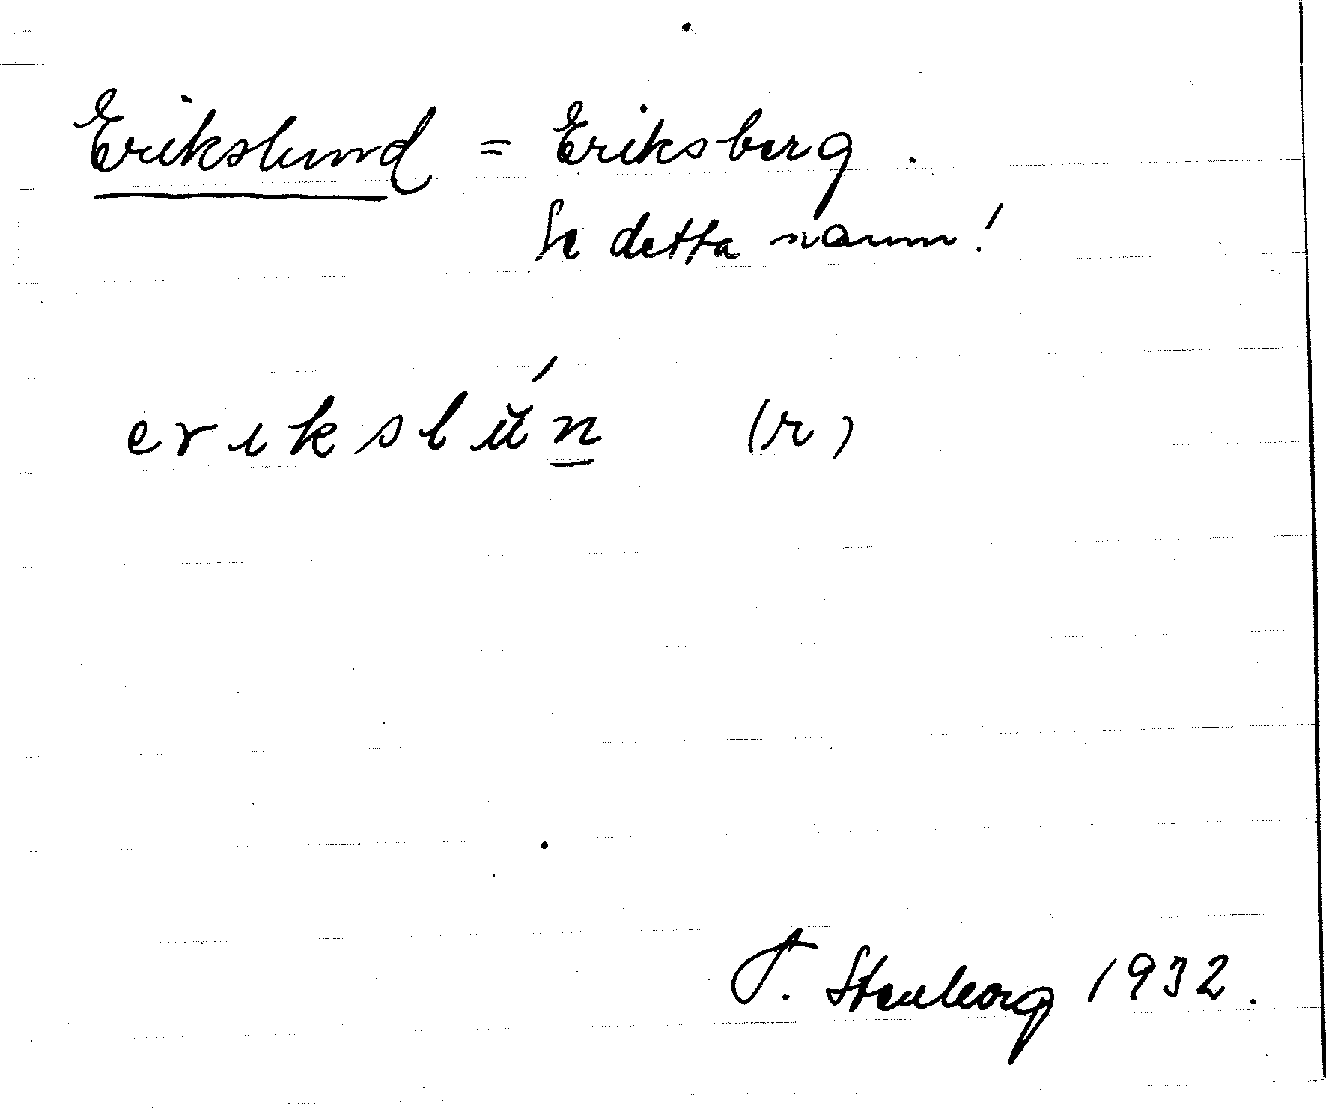 Erikslund = Eriksberg.
Se detta namn!
erikslŭ́n̲ (r)
T. Stenborg 1932.